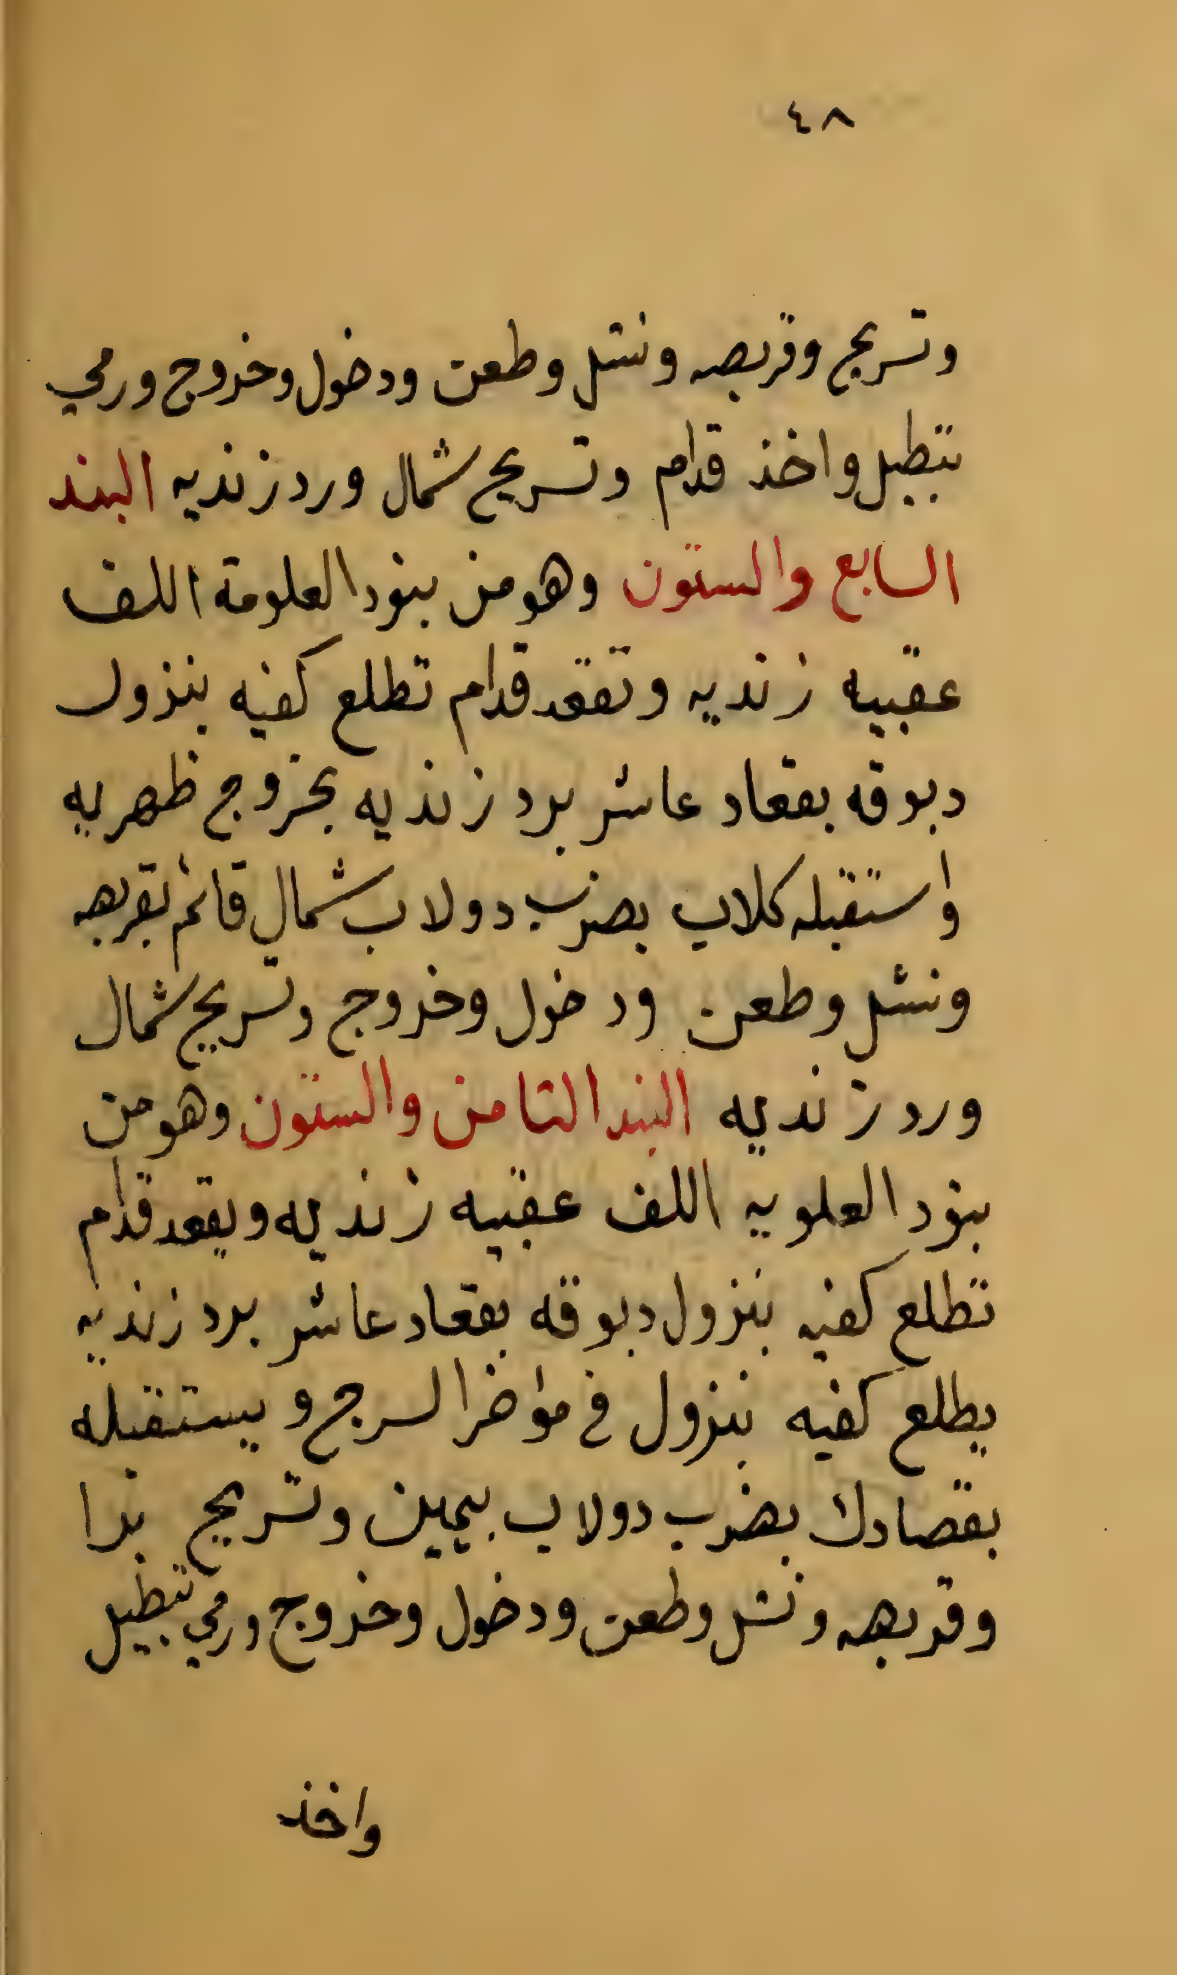 ٤٨
وتسريح وقربصه ونتل وطعن ودخول وخروج ورمي
تبطيل واخذ قدام وتسريح شمال ورد زنديه البند
السابع والستون وهو من بنود العلومة اللف
عقبيه زنديه وتقعد قدام تطلع كفيه بنزول
دبوقه بقعاد عاشر برد زنديه بخروج ظهريه
واستقبله كلاب بضرب دولاب شمال قائم بقربصه
ونتل وطعن ودخول وخروج وتسريح شمال
ورد زنديه البند الثامن والستون وهو من
بنود العلويه اللف عقبيه زنديه ويقعد قدام
تطلع كفيه بنزول دبوقه بقعاد عاشر برد زنديه
يطلع كفيه بنزول في مواخر السرج ويستقبله
بقصادك بضرب دولاب بيمين وتسريح برا
وقربصه ونتل وطعن ودخول وخروج ورمي تبطيل
واخذ